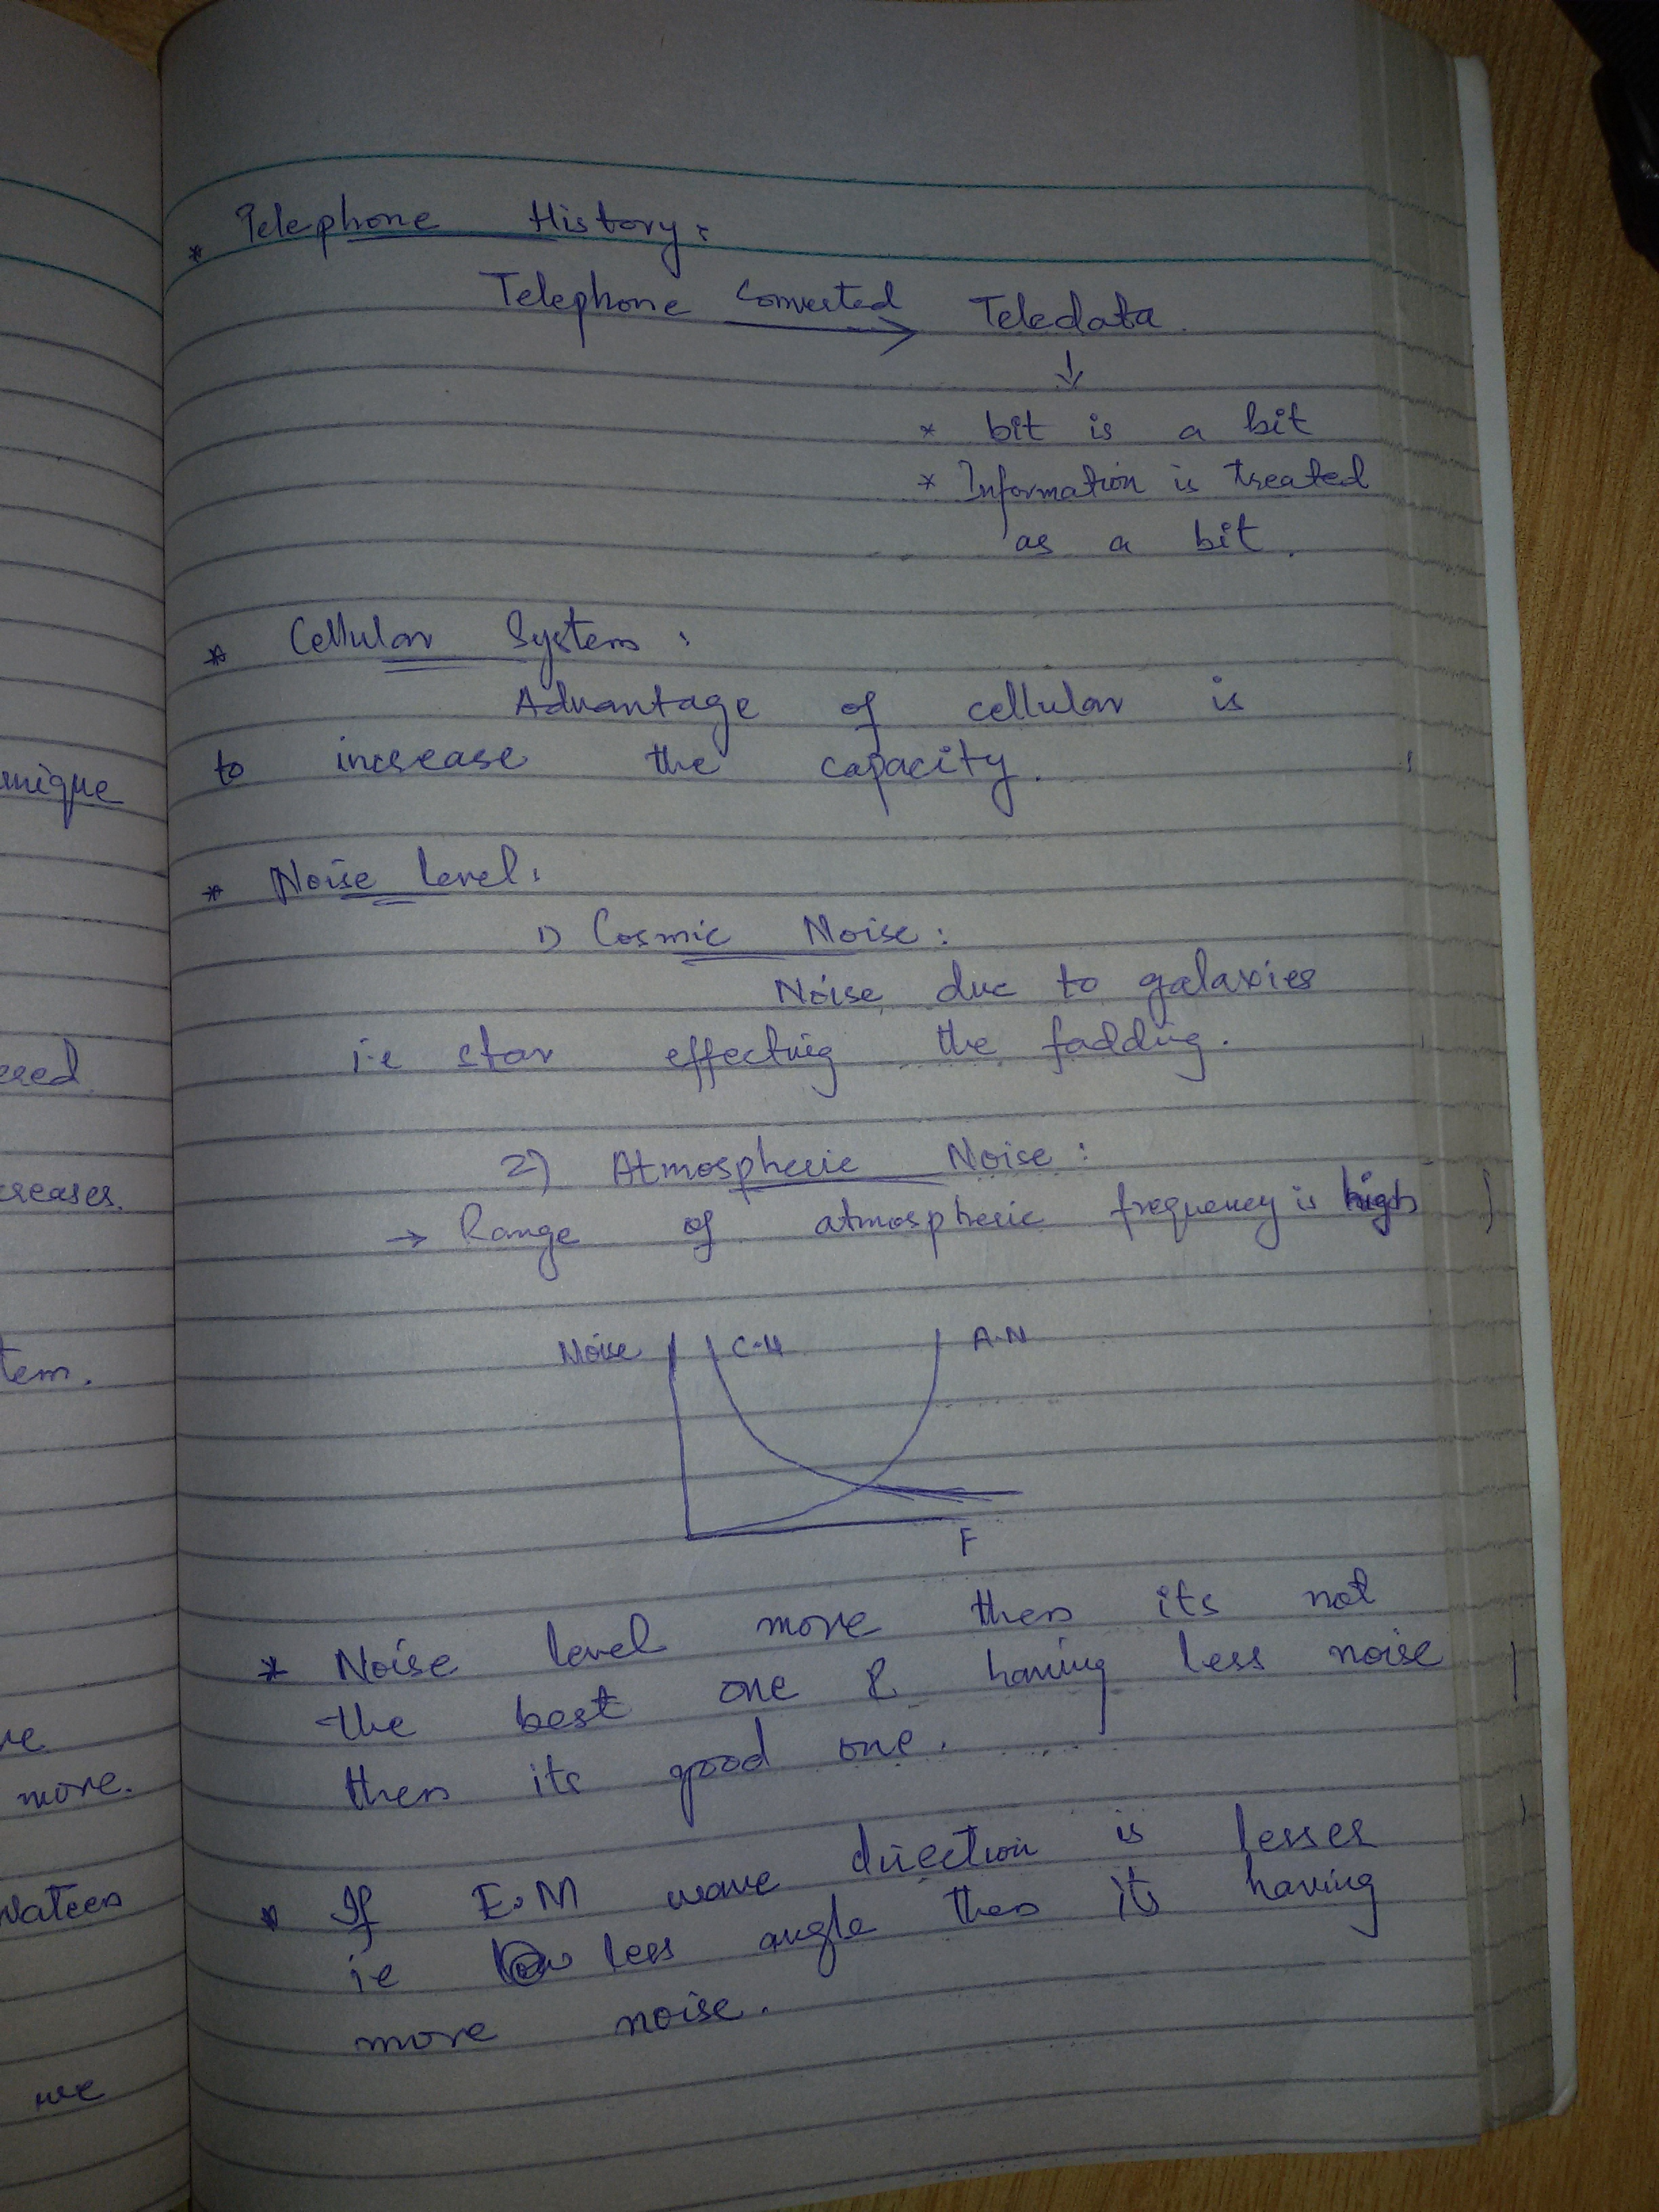 * Telephone History:
Telephone converted → Teledata
↓
* bit is a bit
* Information is treated
as a bit.
* Cellular System:
Advantage of cellular is
to increase the capacity.
* Noise Level:
1) Cosmic Noise:
Noise due to galaxies
i.e star effecting the fadding.
2) Atmospheric Noise:
→ Range of atmospheric frequency is high
Noise C.N A.N
F
* Noise level more then its not
the best one & having less noise
then its good one.
* If E.M wave direction is lesser
ie less angle then its having
more noise.
unique
creases.
tem.
more.
we